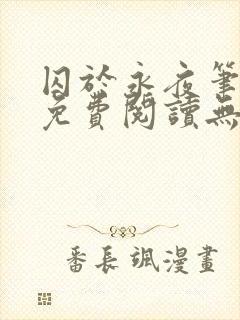 囚於永夜筆
免費閱讀無
番長颯漫畫